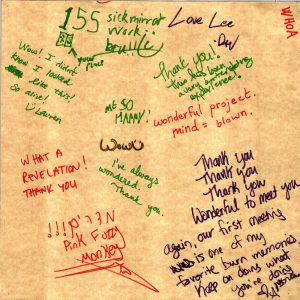 155 sickmirror
work.
your first
Love Lee
WHOA
Wow! I didn't
know I looked
like this!
So arie!
Lauren
Thank you!
this has been
a very
experience!
SO
HAPPY!
wonderful project.
mind = blown.
WOWO
I've always
wondered.
Thank you.
WHAT A
REVELATION!
THANK YOU
Pink Fuzzy
Monkey
Thank you
Thank you
Thank you
Wonderful to meet you
again, our first meeting
is one of my
favorite burn memories
Keep on doing what
you're doing